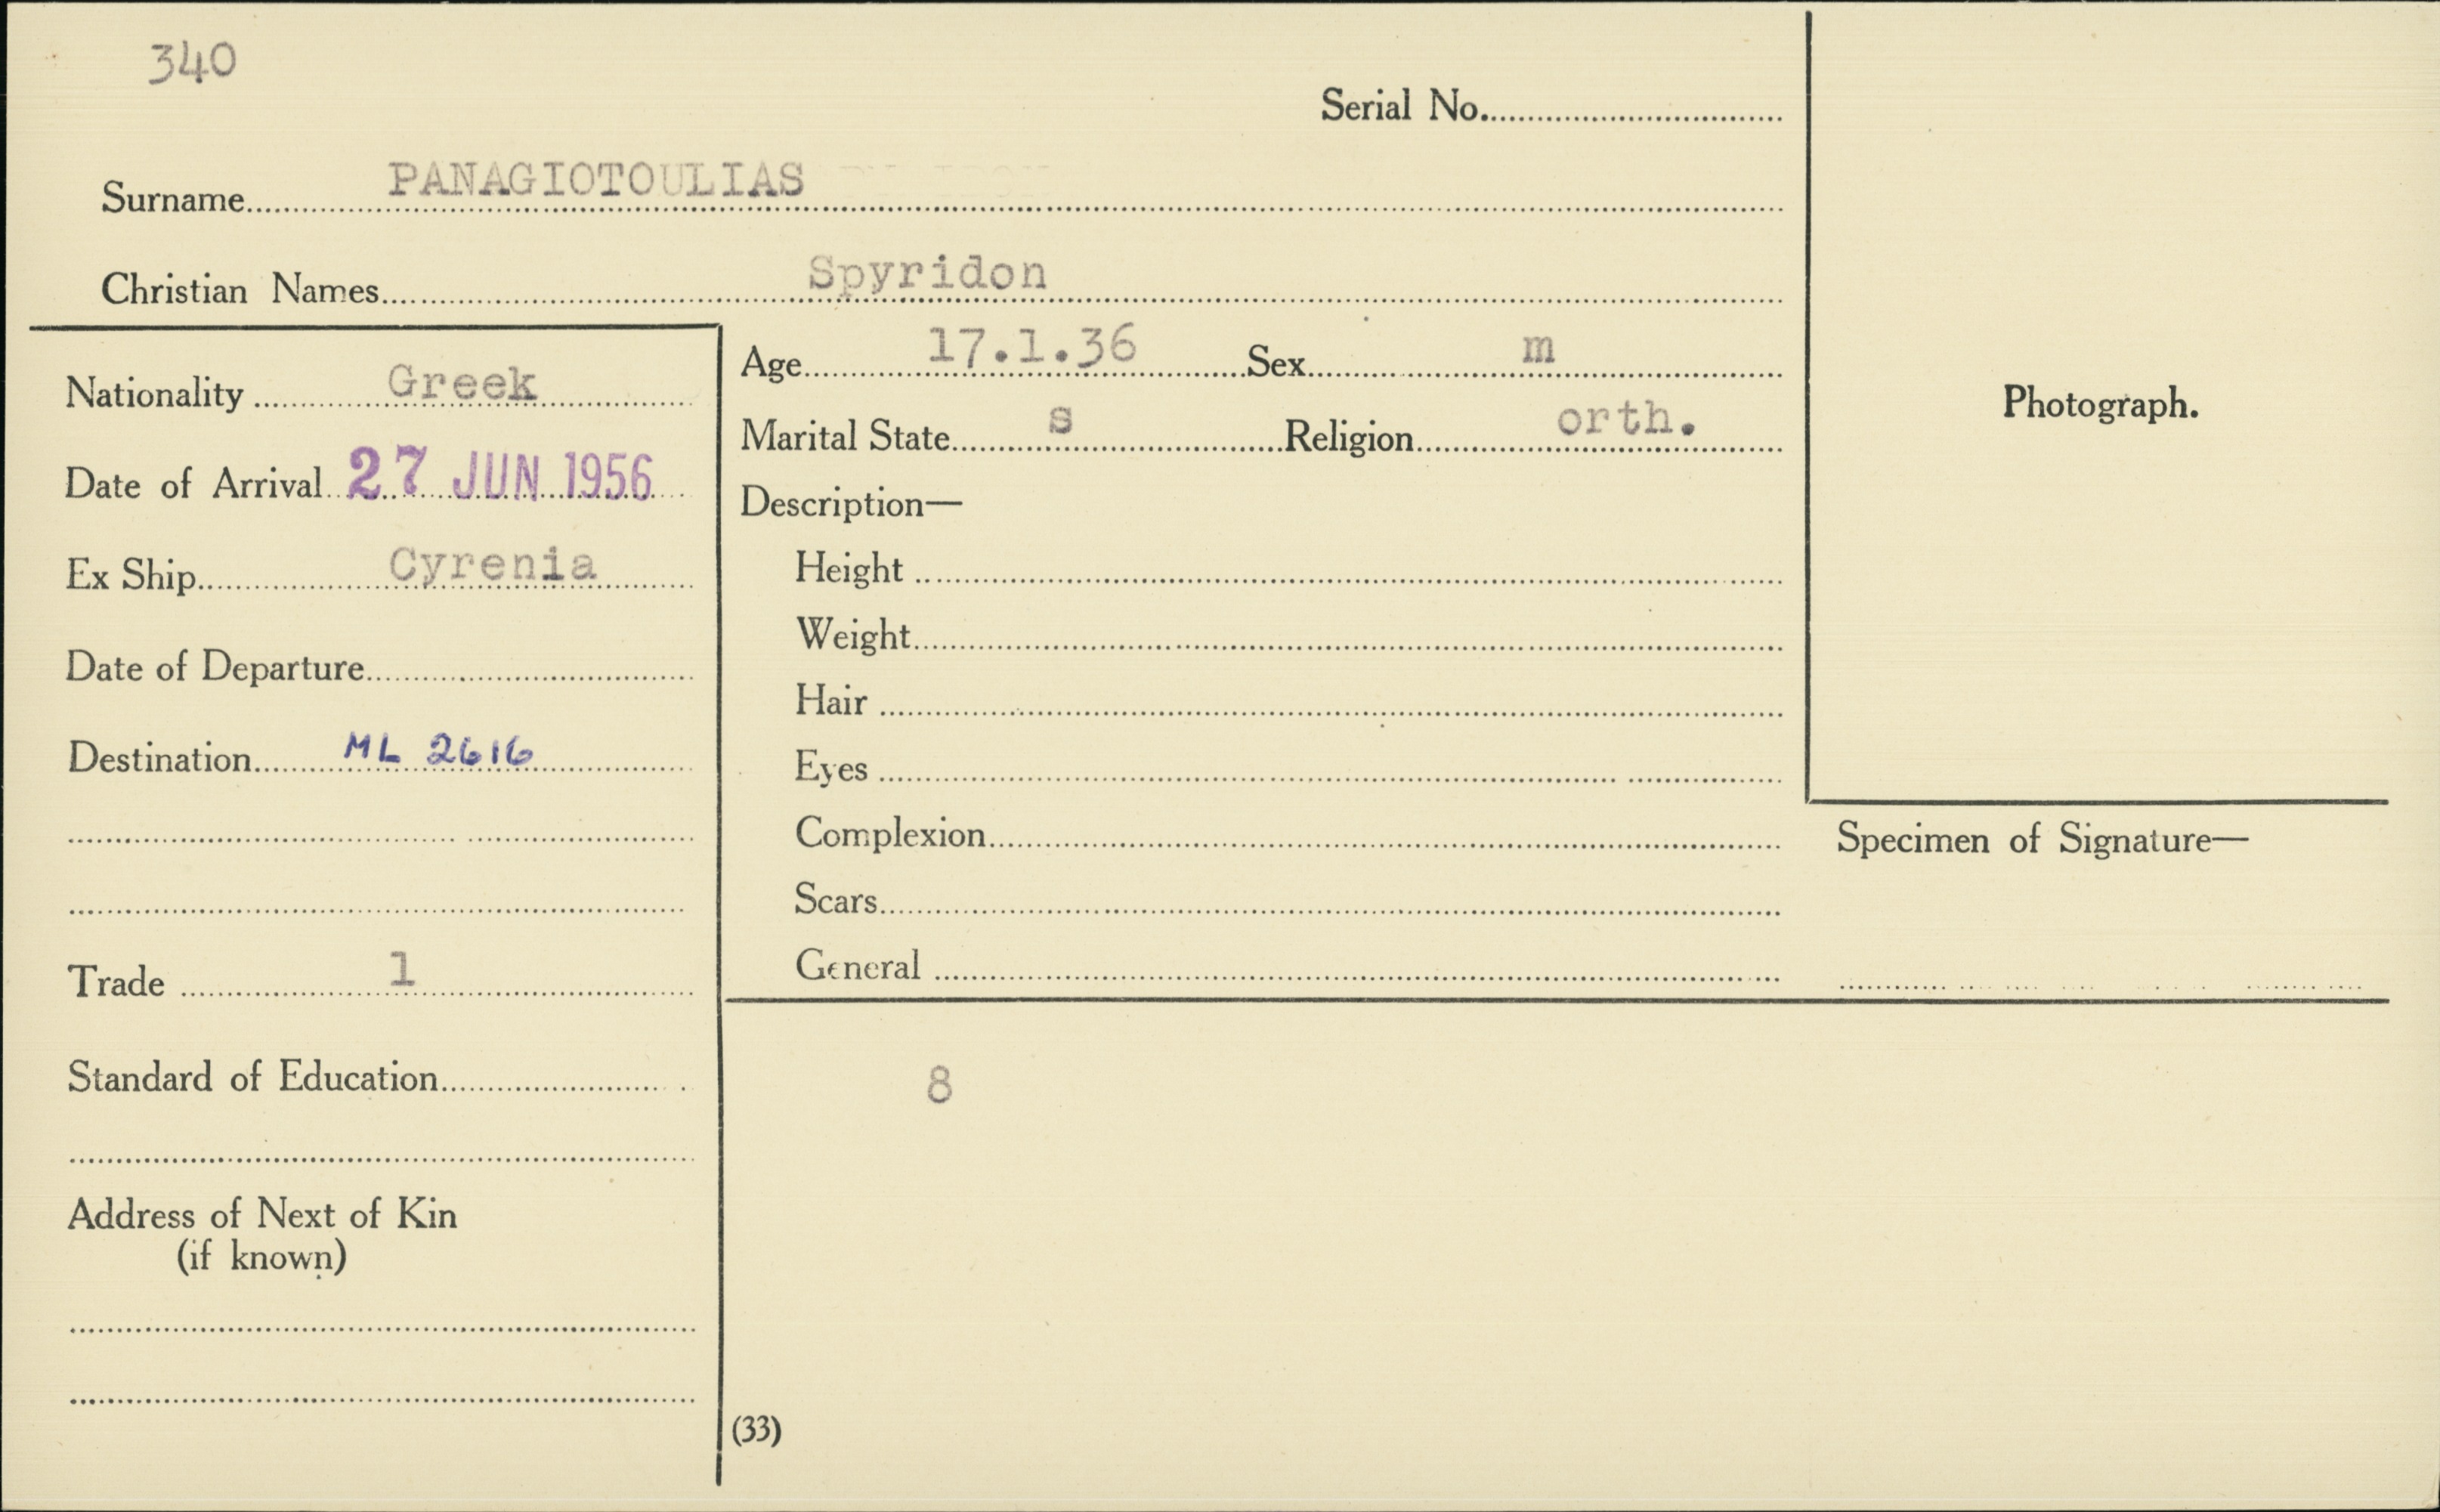 340
Serial No.
Surname PANAGIOTOULIAS
Christian Names Spyridon
Nationality Greek
Date of Arrival 27 JUN 1956
Ex Ship Cyrenia
Date of Departure
Destination ML 2616
Trade 1
Standard of Education
Address of Next of Kin
(if known)
Age 17.1.36 Sex m
Marital State s Religion orth.
Description—
Height
Weight
Hair
Eyes
Complexion
Scars
General
8
(33)
Photograph.
Specimen of Signature—